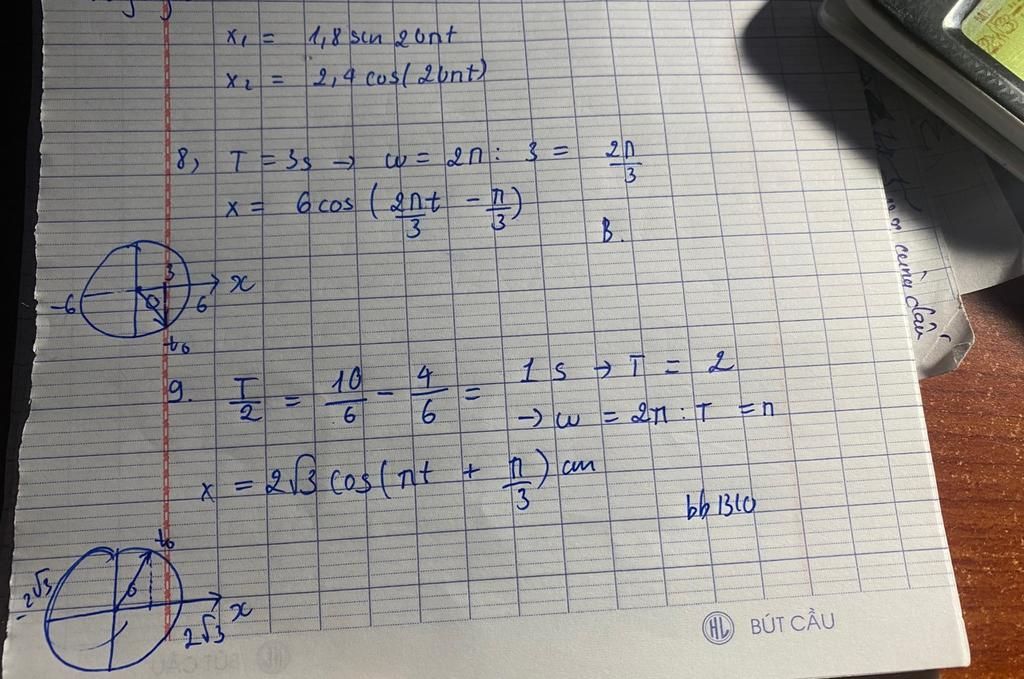 x₁ = 1,8 sin 20πt
x₂ = 2,4 cos(20πt)
8, T = 3s → ω = 2π : 3 = 2π/3
x = 6 cos (2πt/3 - π/3)
B.
3
-6 6 x
t₀
9. T/2 = 10/6 - 4/6 = 1 s → T = 2
→ ω = 2π : T = π
x = 2√3 cos(πt + π/3) cm
t₀
-2√3 2√3 x
HL BÚT CẦU